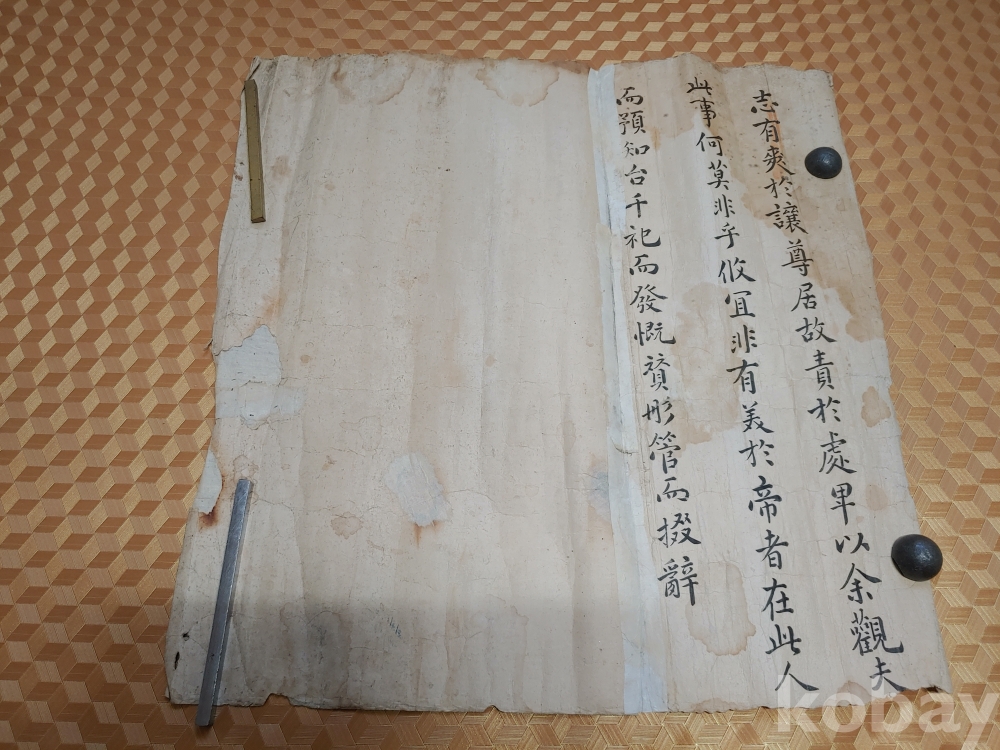 志有爽於讓尊居故責於處卑以余觀夫
此事何莫非乎攸冝非有美於帝者在此人
而預知台千祀而發慨賛彤管而掇辭
kobay